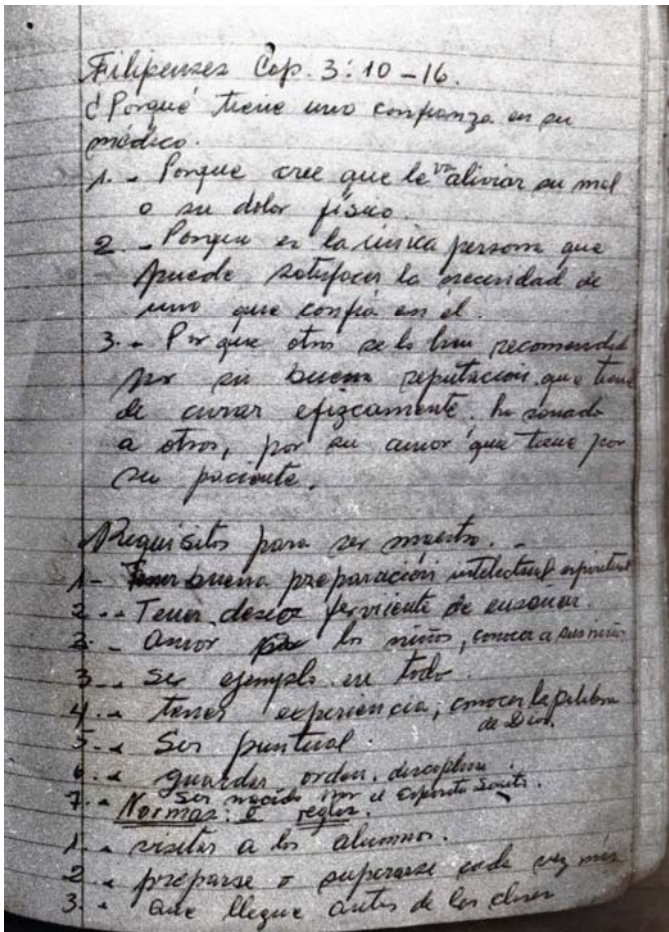 Filipenses Cap. 3:10-16.
¿Porqué tiene uno confianza en su
médico.
1. - Porque cree que le va aliviar su mal
o su dolor físico.
2. - Porque es la única persona que
puede satisfacer la necesidad de
uno que confía en el.
3. - Por que otros se lo han recomendado
por su buena reputación que tiene
de curar eficazmente, ha sanado
a otros, por su amor que tiene por
su paciente.
Requisitos para ser maestro. -
1 - Tener buena preparación intelectual espiritual
2. - Tener deseo ferviente de enseñar.
2. - Amor los niños, conocer a sus niños
3. - Ser ejemplo en todo.
4. - tener experiencia, conocer la palabra
de Dios.
5. - Ser puntual.
6. - guardar orden, disciplina.
7. - Ser nacido por el espíritu Santo.
Normas: o reglas.
1. - visitar a los alumnos.
2. - preparse o superarse cada vez más
3. - Que llegue antes de las clases